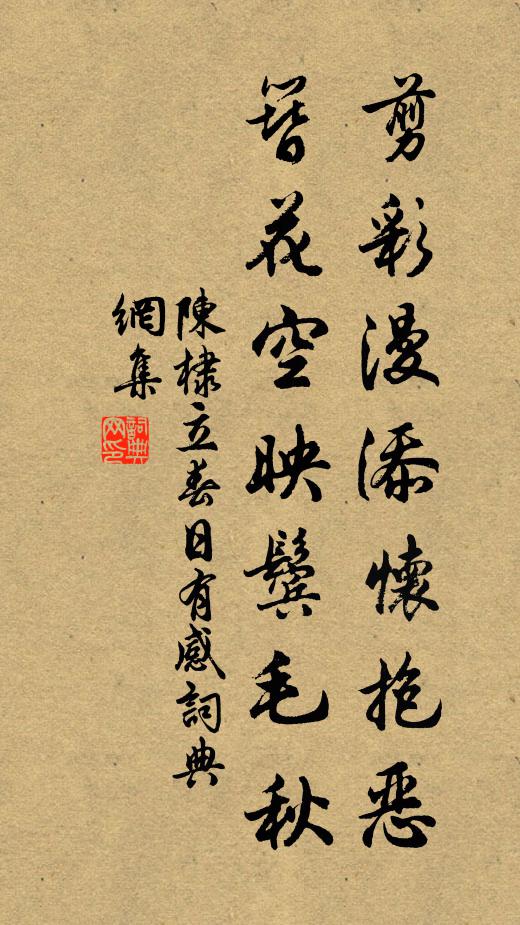 剪彩漫添懷抱惡
簪花空映鬓毛秋
陳棣立春日有感詞典
網集
詞典
网印